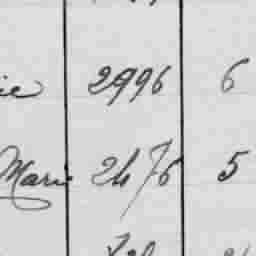 2996 6
Marie 2476 5